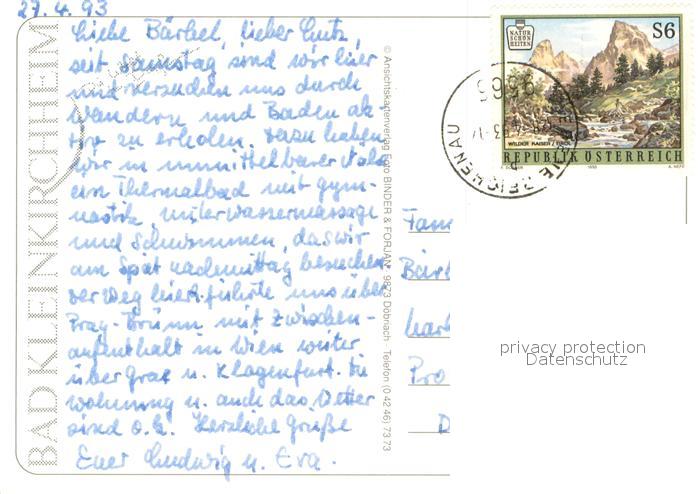 27.4.93
Liebe Bärbel, lieber Lutz,
seit Samstag sind wir hier
und versuchen uns durch
Wandern und Baden ak-
tiv zu erholen. Dazu haben
wir in unmittelbarer Nähe
ein Thermalbad mit Gym-
nastik, Unterwassermassage
und Schwimmen, das wir
am Spätnachmittag besuchen
Der Weg hierher führte uns über
Prag-Brünn mit Zwischen-
aufenthalt in Wien weiter
über Graz u. Klagenfurt. Die
Wohnung u. auch das Wetter
sind o.k. Herzliche Grüße
Euer Ludwig u. Eva.
BAD KLEINKIRCHHEIM
© Ansichtskartenverlag Foto BINDER & FORJAN, 9873 Döbriach - Telefon (0 42 46) 73 73
NATUR
SCHÖN
HEITEN
S6
WILDER KAISER / TIROL
REPUBLIK ÖSTERREICH
1993
9565
REICHENAU
Fam
Bärb
Karl
Pro
D
privacy protection
Datenschutz